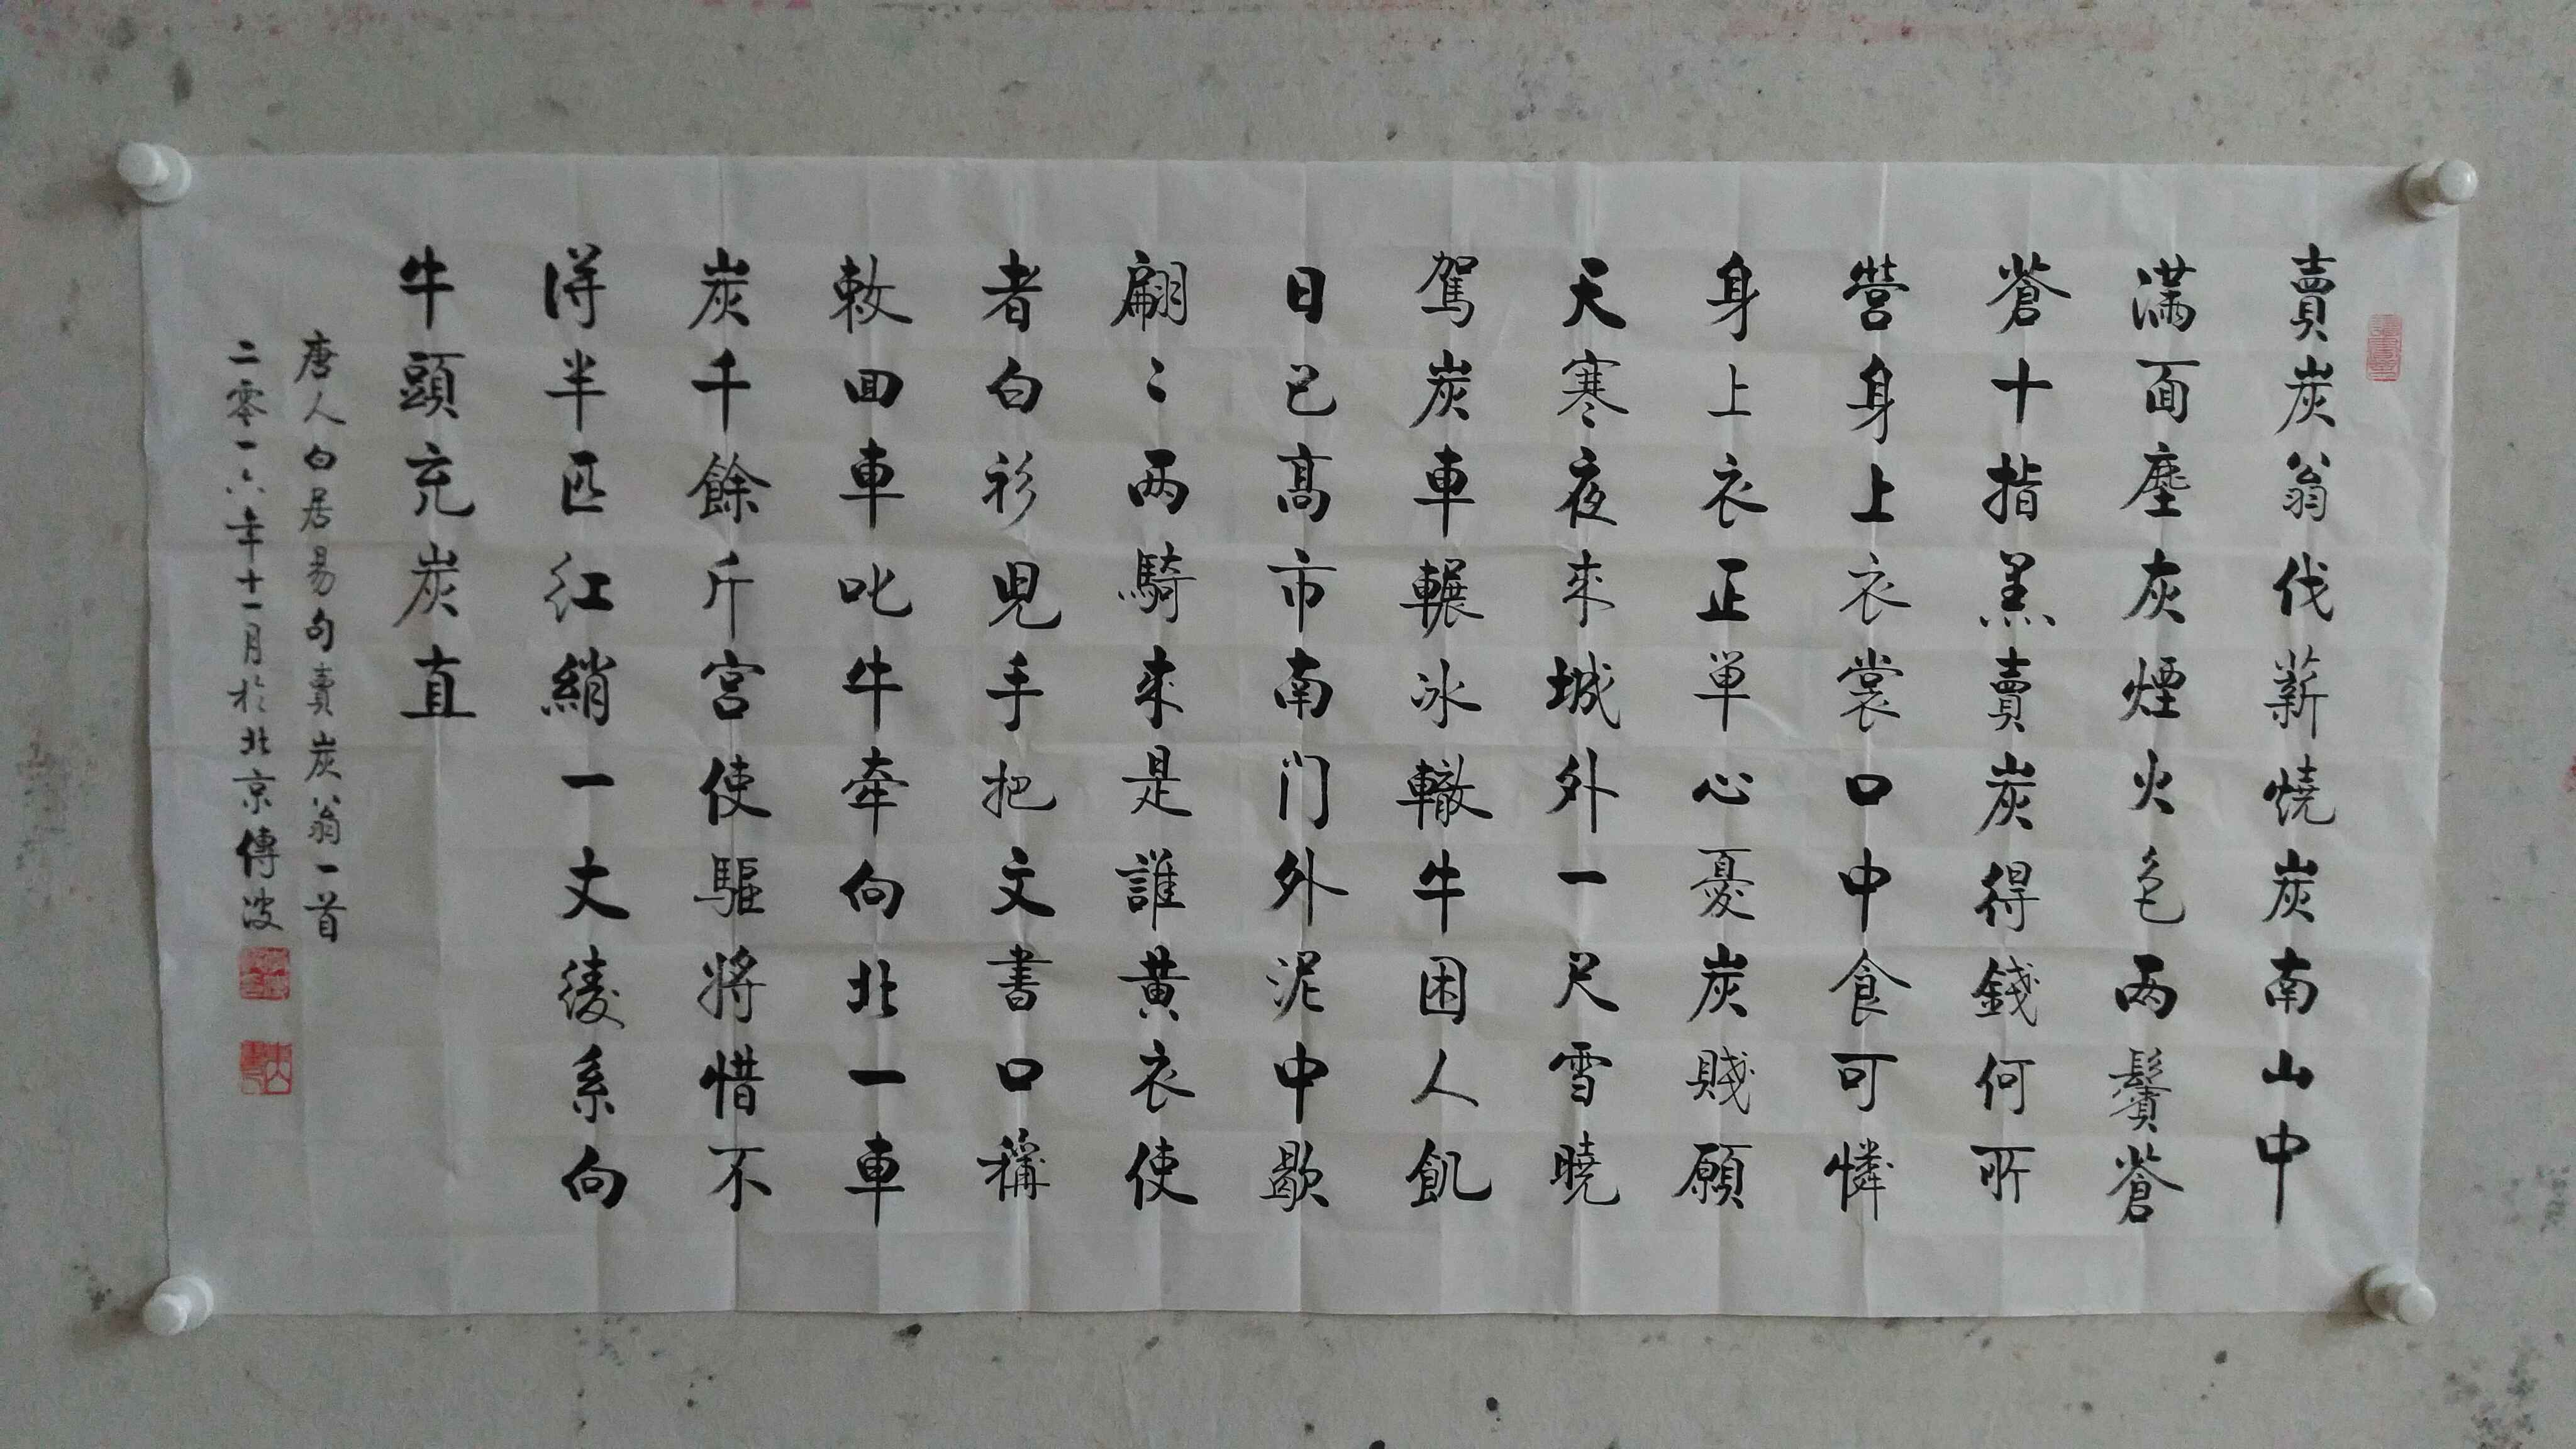 賣炭翁伐薪燒炭南山中
满面塵灰煙火色两鬢蒼
蒼十指黑賣炭得錢何所
营身上衣裳口中食可憐
身上衣正单心憂炭賤願
天寒夜来城外一尺雪曉
駕炭車輾冰轍牛困人飢
日已髙市南门外泥中歇
翩〻两騎来是誰黄衣使
者白衫兒手把文書口稱
敕回車叱牛牽向北一車
炭千餘斤宫使驅将惜不
得半匹红綃一丈綾系向
牛頭充炭直
唐人白居易句賣炭翁一首
二零一六年十一月於北京傳波